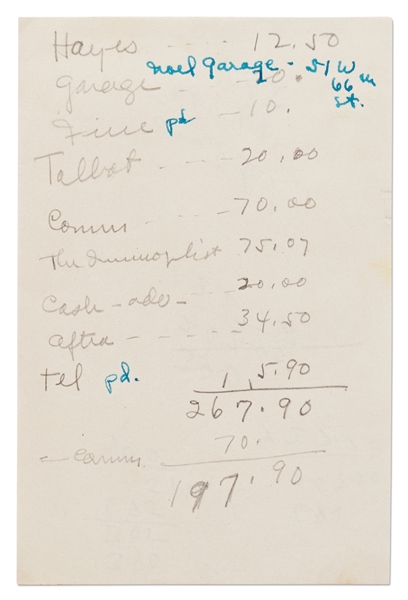 Hayes - - - - 12.50
Noel Garage - 51 W
66 th
st.
Garage - 10.
Fine pd - - 10.
Talbot - - - - 20.00
Comm - - - - 70.00
The 75.07
Cash - adv - - - - 20.00
Aftra - - - - - 34.50
Tel pd. 15.90
267.90
- Comm. 70.
197.90